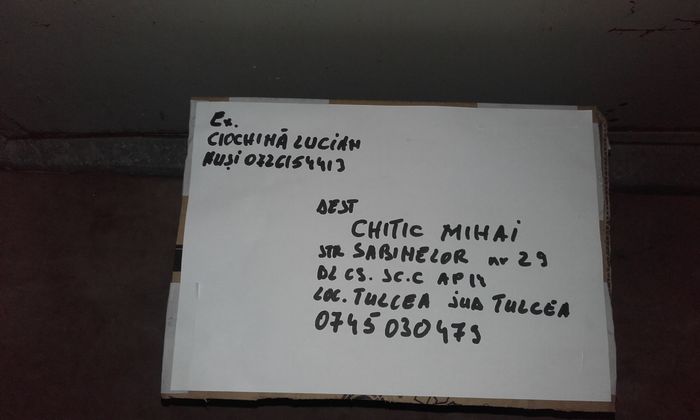 Ex.
CIOCHINĂ LUCIAN
HUȘI 0726154413
DEST
CHITIC MIHAI
STR SABINELOR nr 29
BL C5. SC.C AP 14
LOC. TULCEA JUD TULCEA
0745 030479